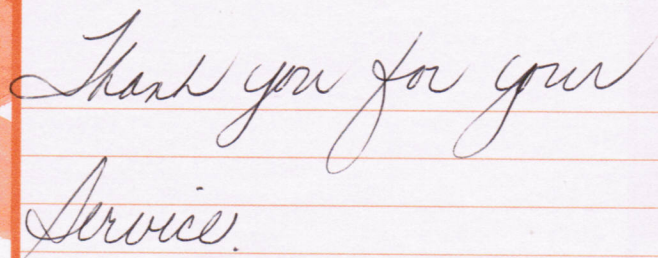 Thank you for your
Service.